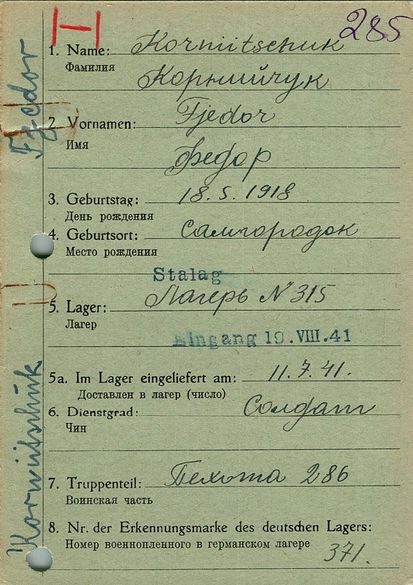 285
1. Name: Kornitschuk
Фамилия Корнийчук
2. Vornamen: Fjedor
Имя Федор
3. Geburtstag: 18.5.1918
День рождения
4. Geburtsort: Самгородок
Место рождения
Stalag
5. Lager: Лагерь N 315
Лагер
Eingang 19. VIII. 41
5a. Im Lager eingeliefert am: 11.7.41.
Доставлен в лагер (число)
6. Dienstgrad: Солдат
Чин
7. Truppenteil: Пехота 286
Воинская часть
8. Nr. der Erkennungsmarke des deutschen Lagers:
Номер военнопленного в германском лагере 371.
Kornitschuk Fjedor